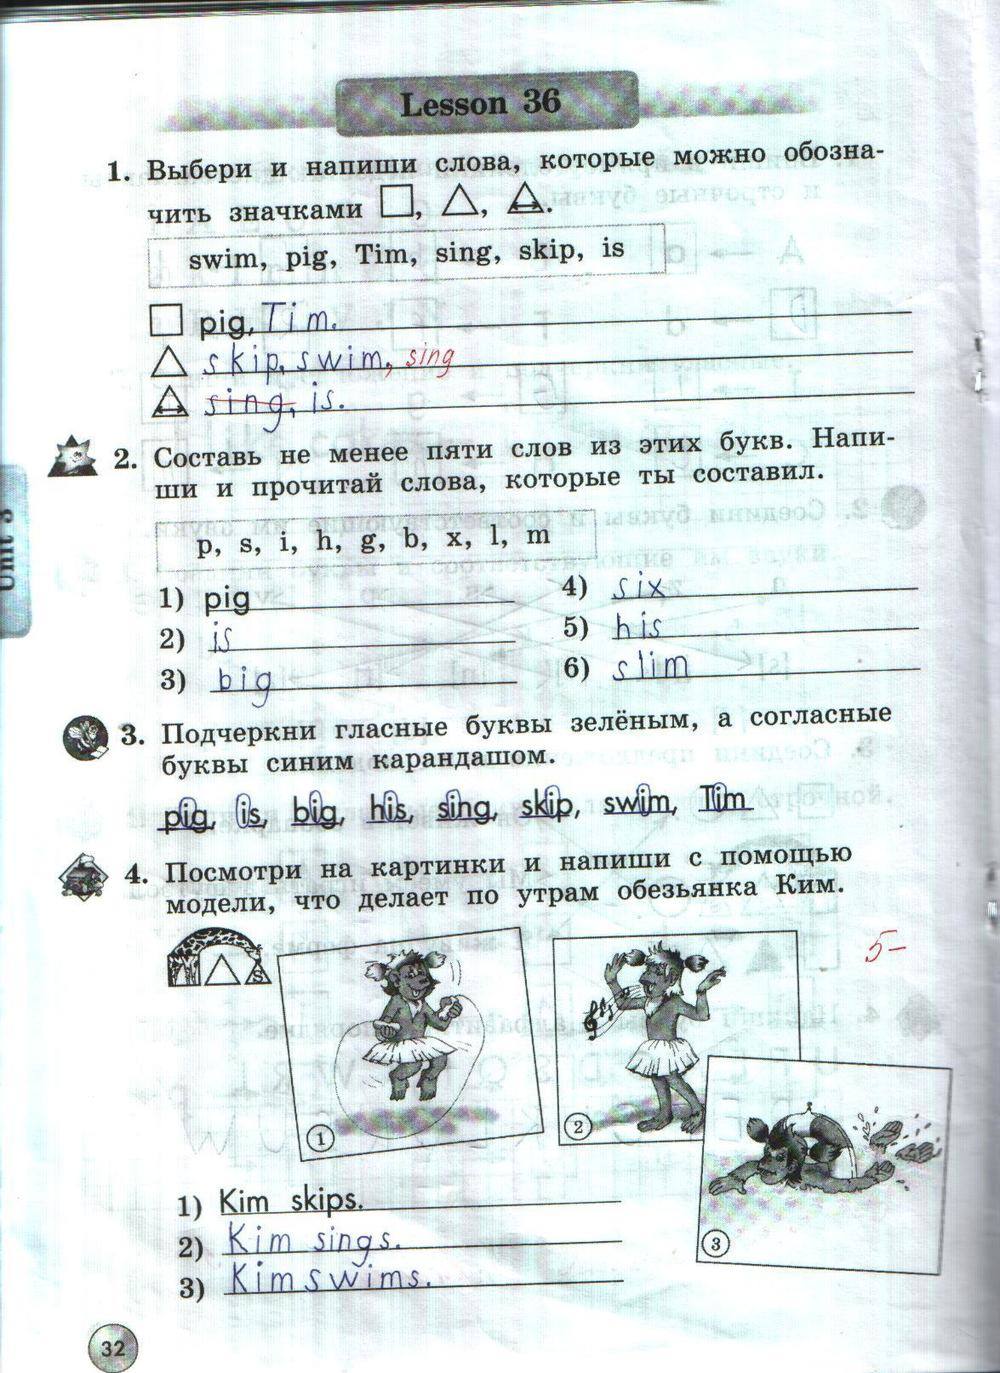 Lesson 36
1. Выбери и напиши слова, которые можно обозна-
чить значками □, △, △.
swim, pig, Tim, sing, skip, is
pig, Tim.
skip, swim, sing
sing, is.
2. Составь не менее пяти слов из этих букв. Напи-
ши и прочитай слова, которые ты составил.
p, s, i, h, g, b, x, l, m
1) pig
2) is
3) big
4) six
5) his
6) slim
Unit 3
3. Подчеркни гласные буквы зелёным, а согласные
буквы синим карандашом.
pig, is, big, his, sing, skip, swim, Tim
4. Посмотри на картинки и напиши с помощью
модели, что делает по утрам обезьянка Ким.
5-
S
1
2
3
1) Kim skips.
2) Kim sings.
3) Kim swims.
32